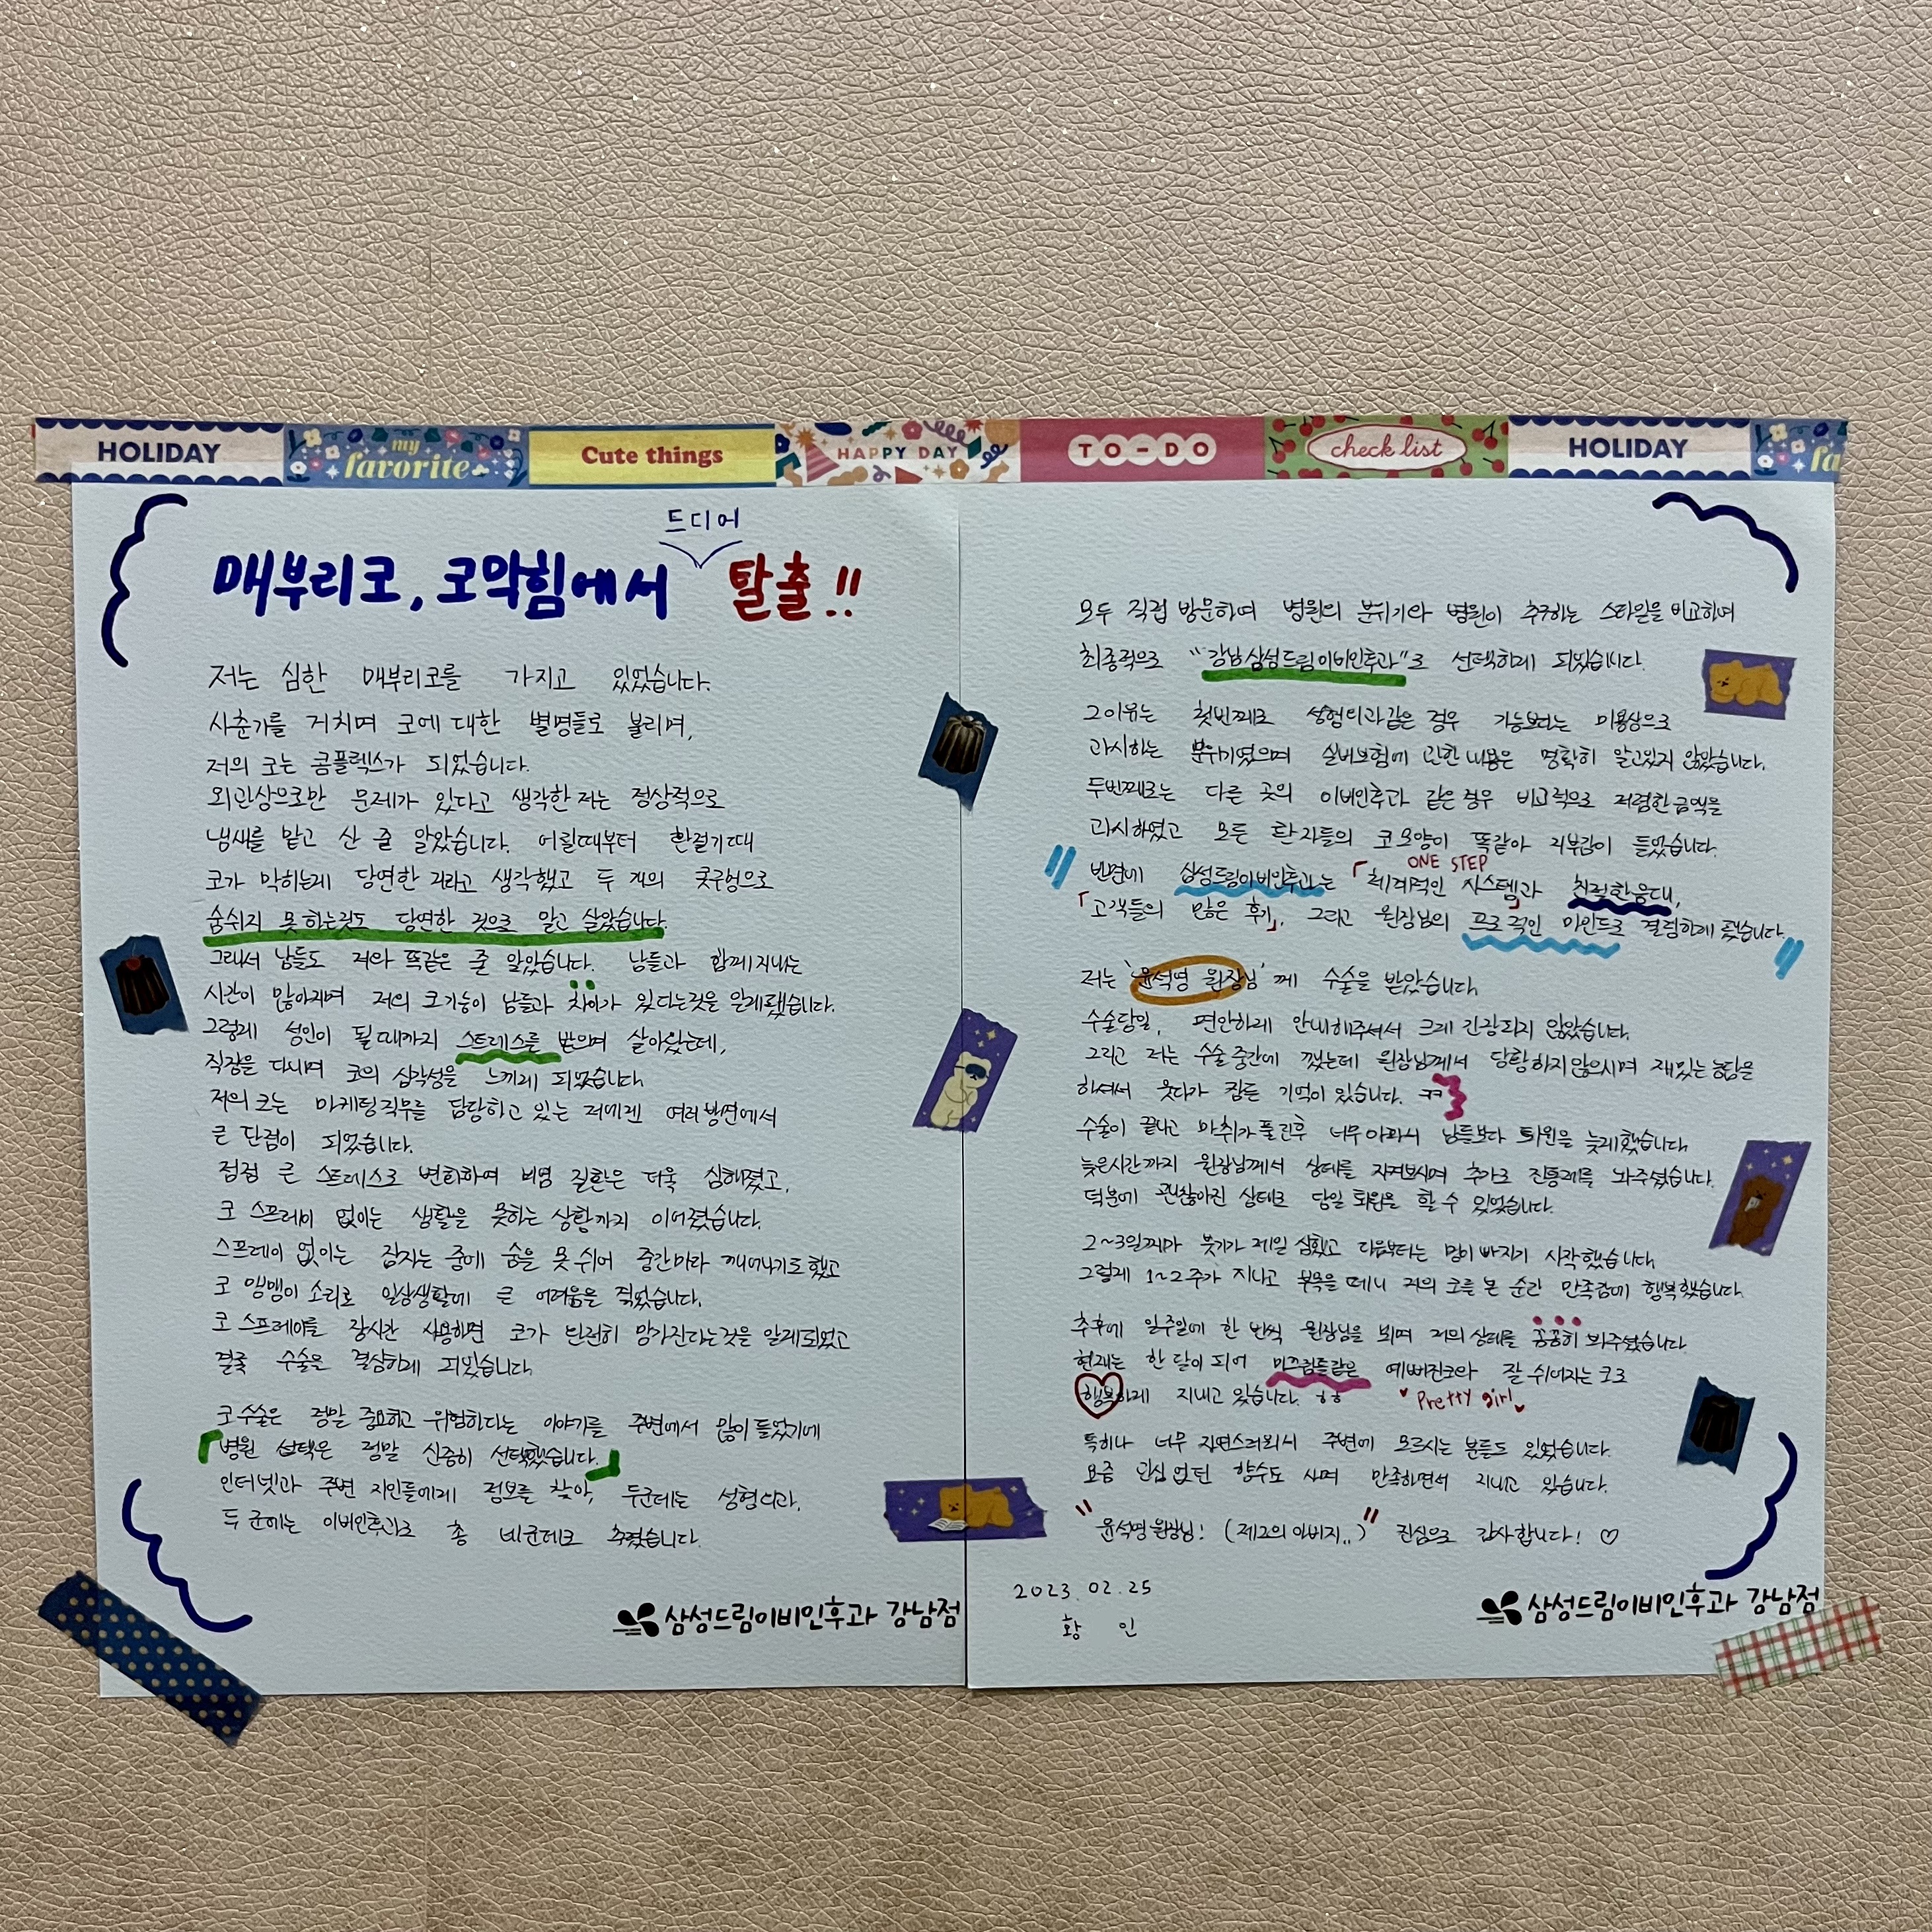 HOLIDAY my favorite Cute things HAPPY DAY TO-DO check list HOLIDAY fa
드디어
매부리코, 코막힘에서 탈출!!
저는 심한 매부리코를 가지고 있었습니다.
사춘기를 거치며 코에 대한 별명들로 불리며,
저의 코는 콤플렉스가 되었습니다.
외관상으로만 문제가 있다고 생각한 저는 정상적으로
냄새를 맡고 산 줄 알았습니다. 어릴때부터 환절기때
코가 막히는게 당연한 거라고 생각했고 두 개의 콧구멍으로
숨쉬지 못하는것도 당연한 것으로 알고 살았습니다.
그래서 남들도 저와 똑같은 줄 알았습니다. 남들과 함께 지내는
시간이 많아지며 저의 코기능이 남들과 차이가 있다는것을 알게됐습니다.
그렇게 성인이 될때까지 스트레스를 받으며 살아왔는데,
직장을 다니며 코의 심각성을 느끼게 되었습니다.
저의 코는 마케팅직무를 담당하고 있는 저에겐 여러방면에서
큰 단점이 되었습니다.
점점 큰 스트레스로 변화하며 비염 질환은 더욱 심해졌고,
코 스프레이 없이는 생활을 못하는 상황까지 이어졌습니다.
스프레이 없이는 잠자는 중에 숨을 못 쉬어 중간마다 깨어나기도 했고
코 맹맹이 소리로 일상생활에 큰 어려움을 겪었습니다.
코 스프레이를 장시간 사용하면 코가 완전히 망가진다는것을 알게되었고
결국 수술을 결심하게 되었습니다.
코수술은 정말 중요하고 위험하다는 이야기를 주변에서 많이 들었기에
「병원 선택은 정말 신중히 선택했습니다.」
인터넷과 주변 지인들에게 정보를 찾아, 두군데는 성형외과,
두 군데는 이비인후과로 총 네군데로 추렸습니다.
삼성드림이비인후과 강남점
모두 직접 방문하며 병원의 분위기와 병원이 추구하는 스타일을 비교하며
최종적으로 "강남삼성드림이비인후과"로 선택하게 되었습니다.
그이유는 첫번째로 성형외과같은 경우 기능보다는 미용상으로
과시하는 분위기였으며 실비보험에 관한 내용은 명확히 알고있지 않았습니다.
두번째로는 다른 곳의 이비인후과 같은 경우 비교적으로 저렴한 금액을
과시하였고 모든 환자들의 코모양이 똑같아 거부감이 들었습니다.
ONE STEP
"반면에 삼성드림이비인후과는 「체계적인 시스템」과 친절한응대,
「고객들의 많은 후기」, 그리고 원장님의 프로적인 마인드로 결정하게 됐습니다."
저는 '윤석명 원장님'께 수술을 받았습니다.
수술당일, 편안하게 안내해주셔서 크게 긴장되지 않았습니다.
그리고 저는 수술 중간에 깼는데 원장님께서 당황하지않으시며 재밌는 농담을
하셔서 웃다가 잠든 기억이 있습니다. ㅋㅋ
수술이 끝나고 마취가 풀린후 너무 아파서 남들보다 퇴원을 늦게했습니다
늦은시간까지 원장님께서 상태를 지켜보시며 추가로 진통제를 놔주셨습니다.
덕분에 괜찮아진 상태로 당일 퇴원을 할 수 있었습니다.
2~3일째가 붓기가 제일 심했고 다음부터는 멍이 빠지기 시작했습니다.
그렇게 1~2주가 지나고 부목을 떼니 저의 코를 본 순간 만족감에 행복했습니다.
추후에 일주일에 한 번씩 원장님을 뵈며 저의 상태를 꼼꼼히 봐주셨습니다
현재는 한 달이 되어 미끄럼틀같은 예뻐진코와 잘 쉬어지는 코로
행복하게 지내고 있습니다. ㅎㅎ Pretty girl
특히나 너무 자연스러워서 주변에 모르시는 분들도 있었습니다.
요즘 관심 없던 향수도 사며 만족하면서 지내고 있습니다.
"윤석명 원장님! (제2의 아버지..)" 진심으로 감사합니다! ♡
2023. 02. 25
황 인
삼성드림이비인후과 강남점